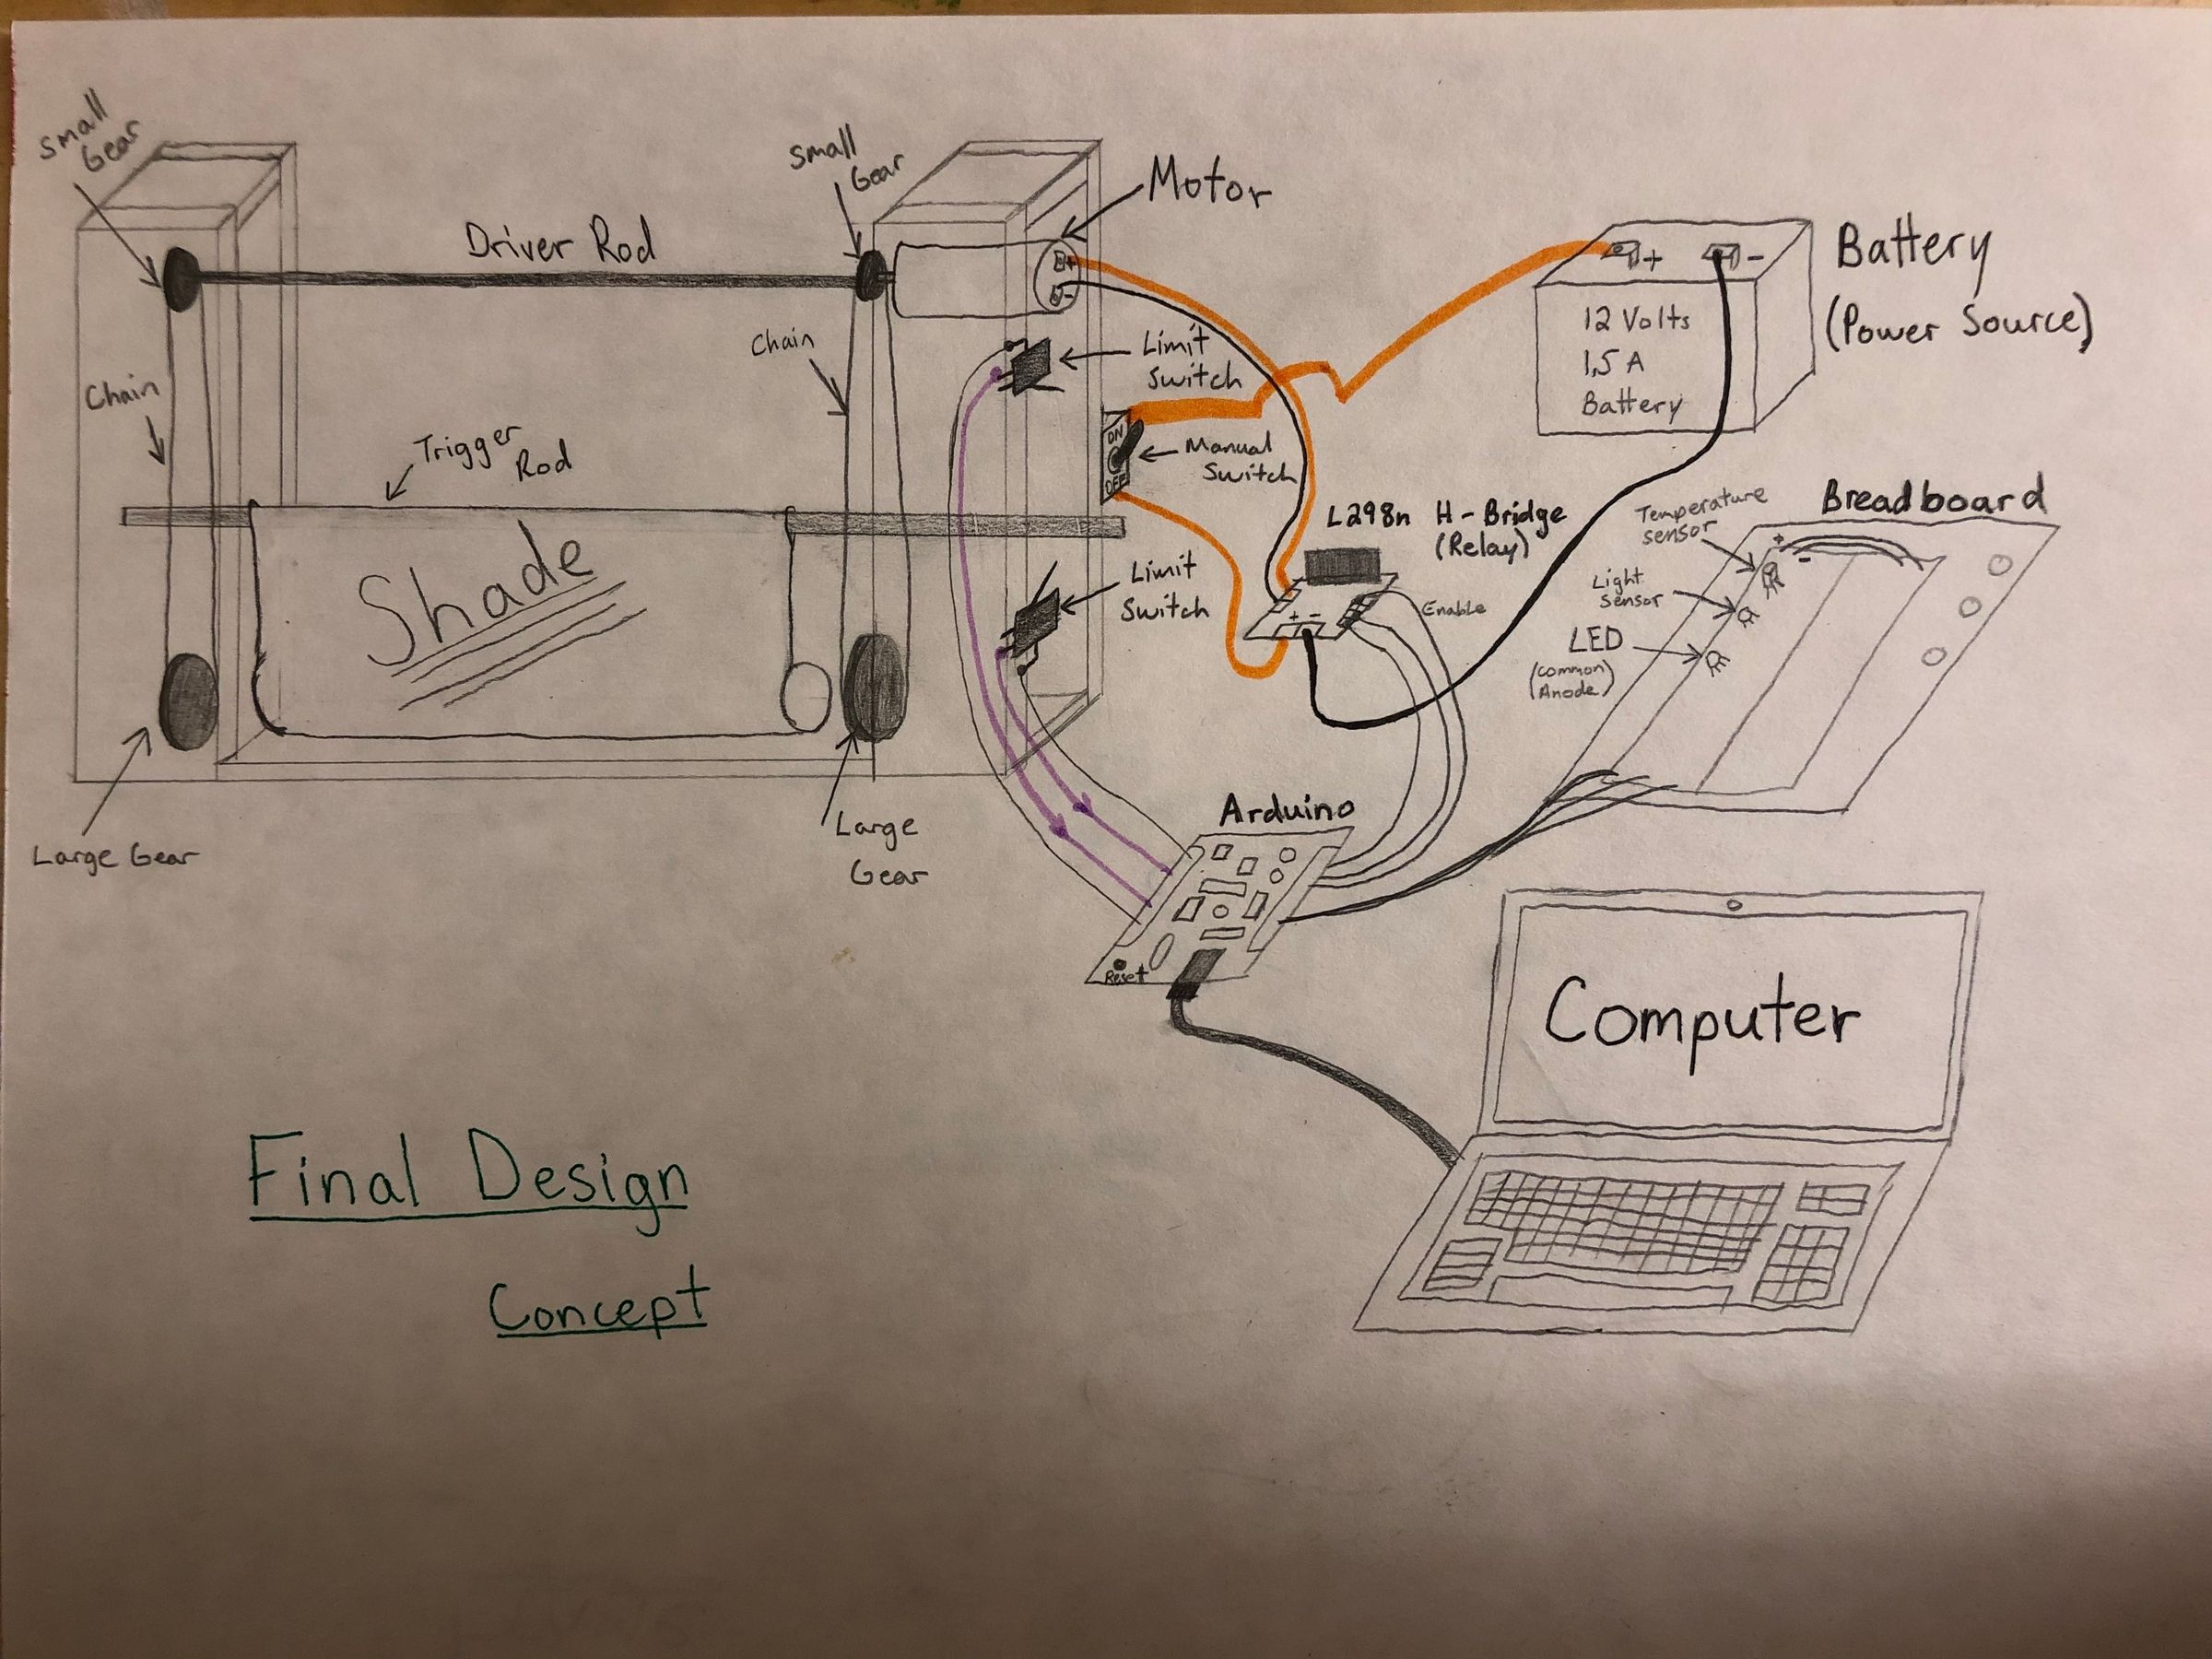 Small
Gear
Driver Rod
Small
Gear
Motor
+
-
Chain
Chain
Trigger
Rod
Shade
Large Gear
Large
Gear
Limit
Switch
ON
OFF
Manual
Switch
Limit
Switch
+ -
Battery
(Power Source)
12 Volts
1.5 A
Battery
L298n H-Bridge
(Relay)
+ -
Enable
Breadboard
Temperature
sensor
Light
sensor
LED
(common)
(Anode)
+
-
Arduino
Reset
Computer
Final Design
Concept